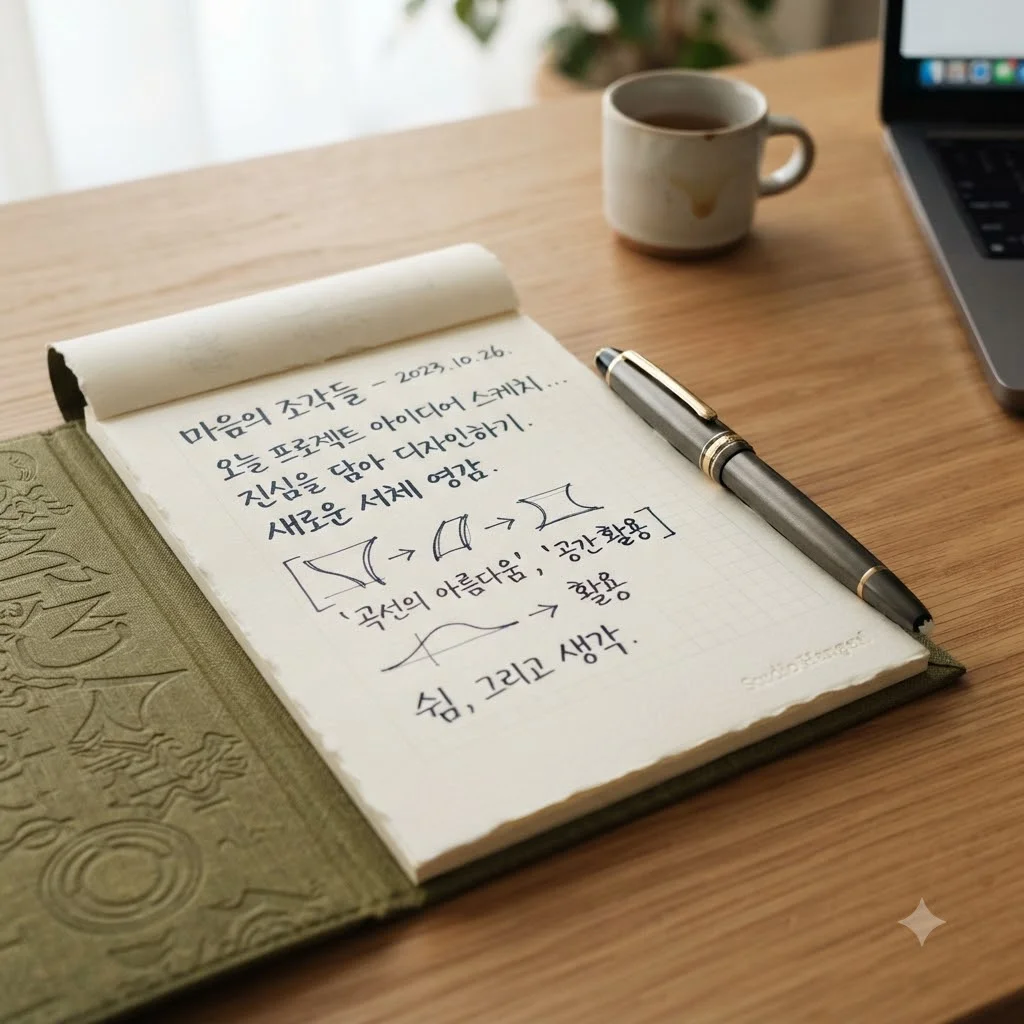 마음의 조각들 – 2023.10.26.
오늘 프로젝트 아이디어 스케치...
진심을 담아 디자인하기.
새로운 서체 영감.
[ → → ]
'곡선의 아름다움', '공간 활용'
→ 활용
쉼, 그리고 생각.